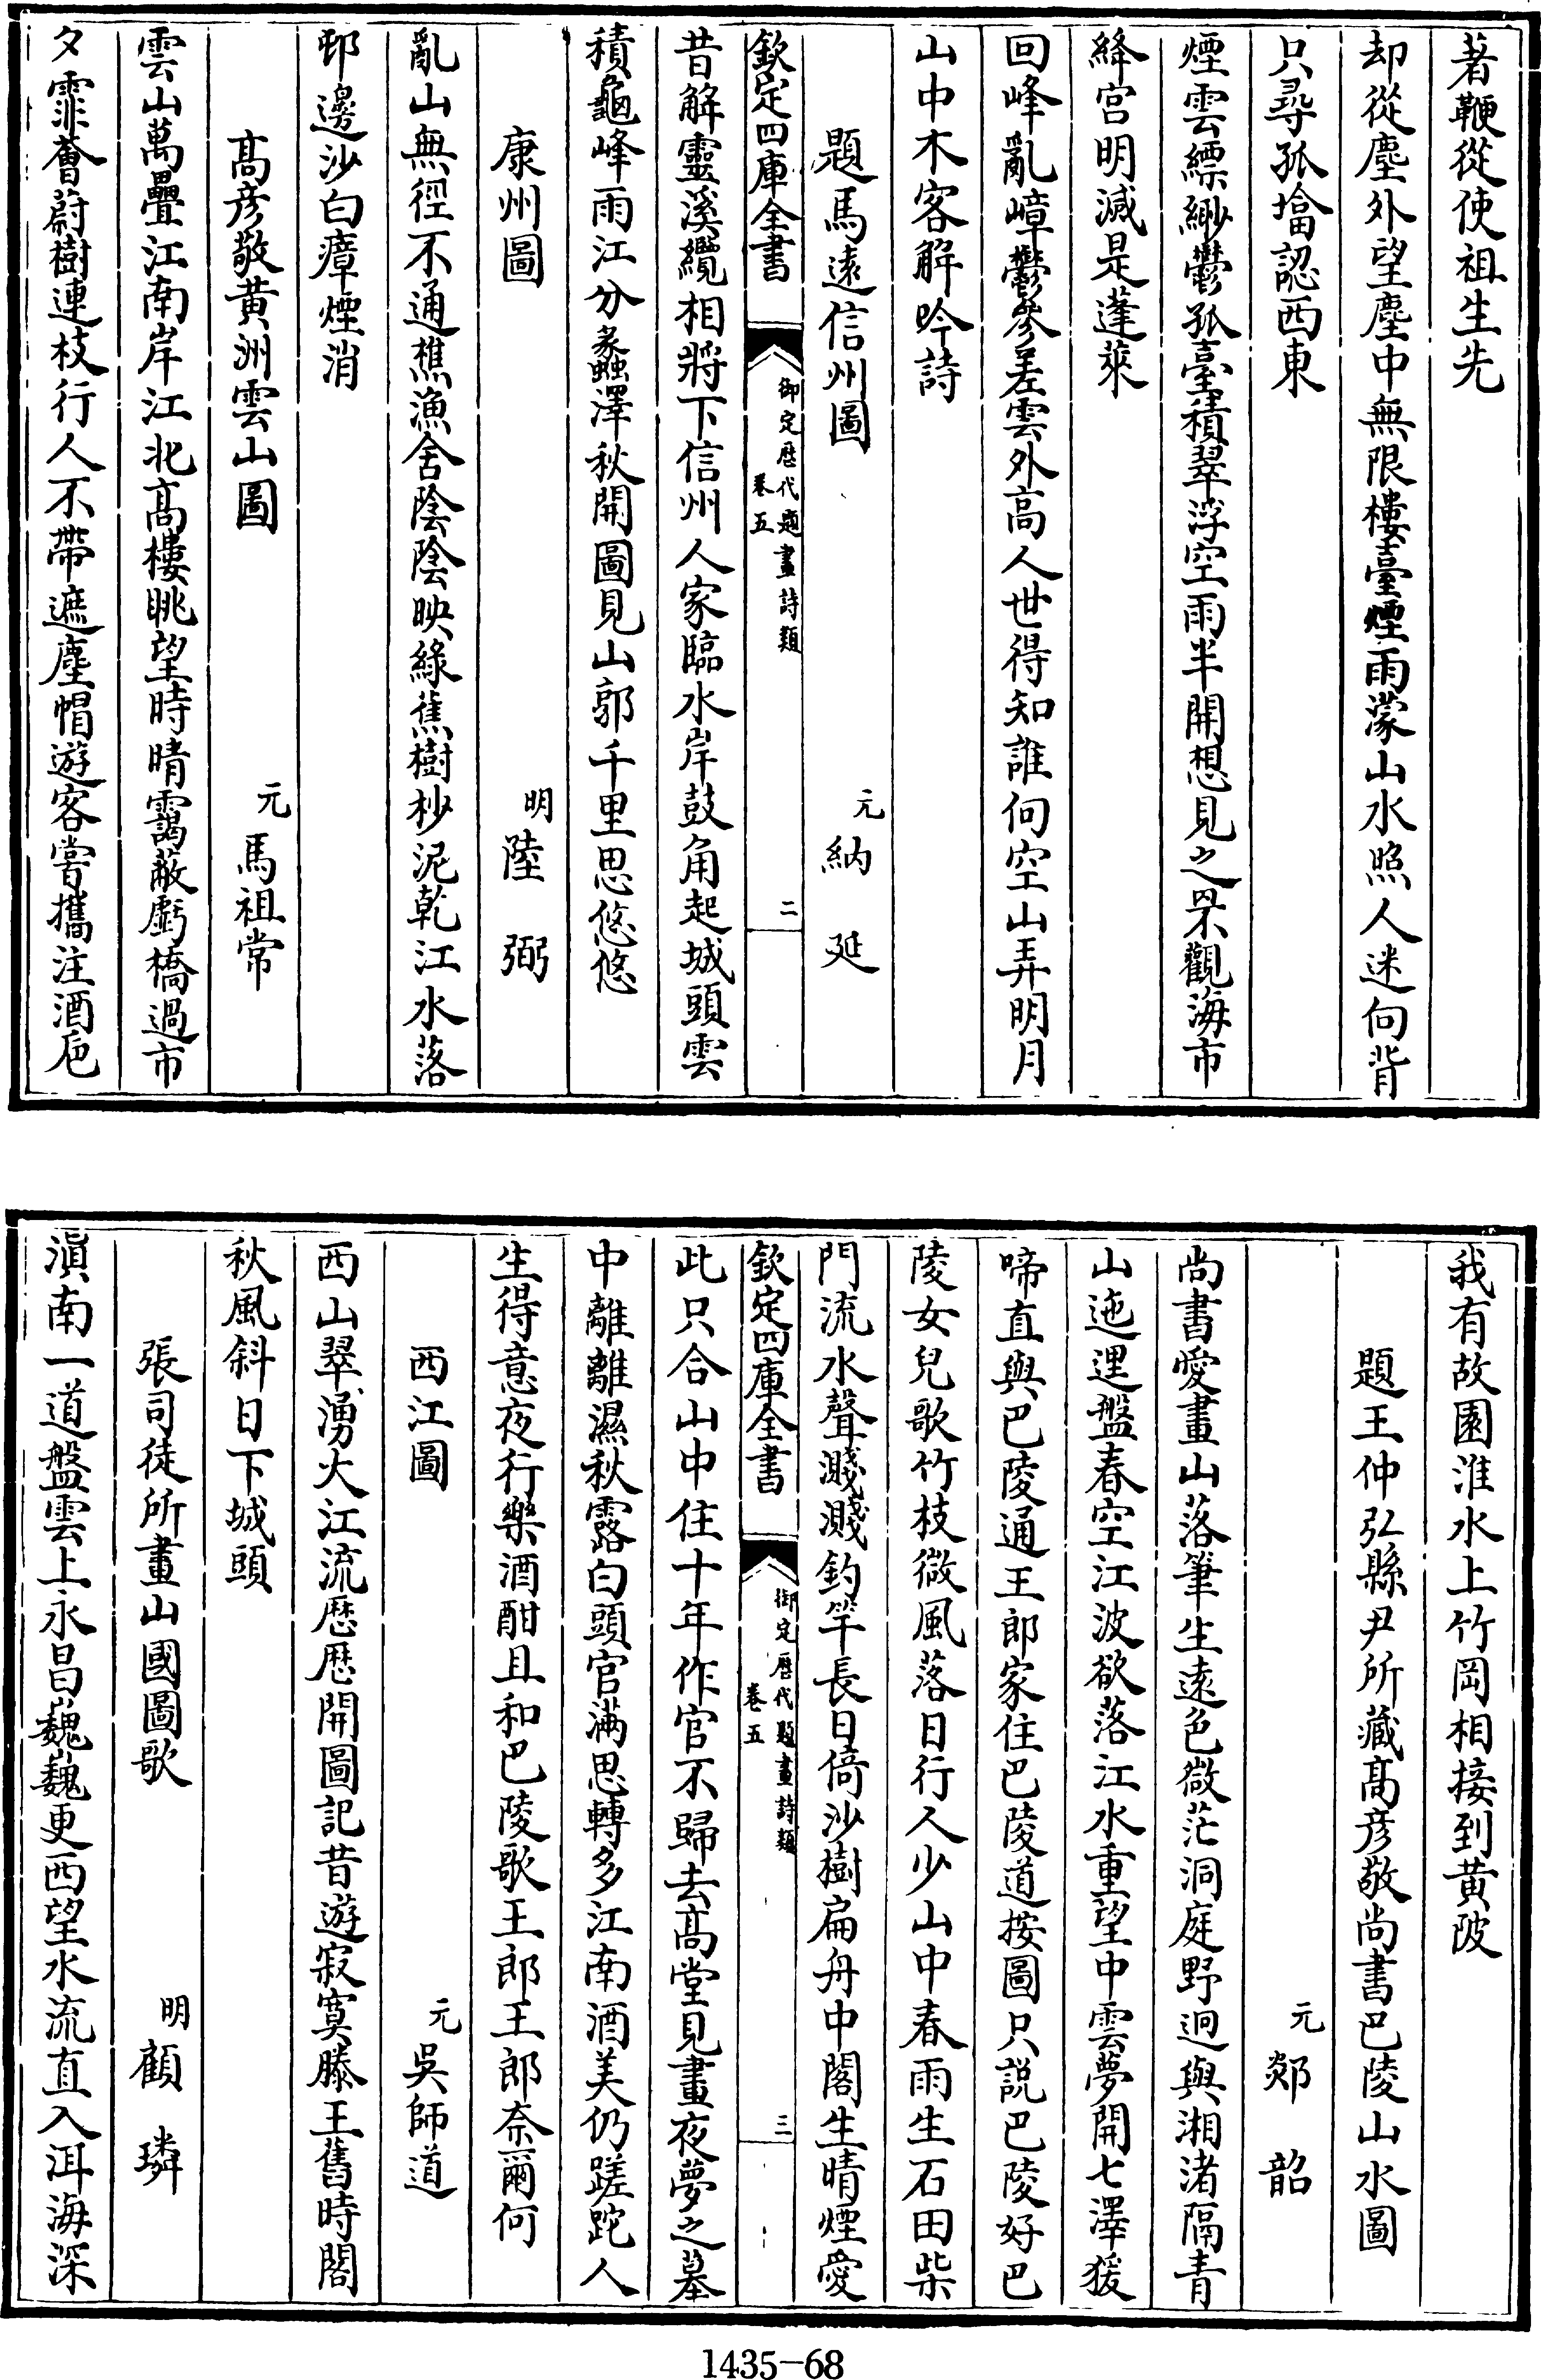 著鞭從使祖生先
却從塵外望塵中無限樓臺煙雨濛山水照人迷向背
只尋孤㙮認西東
煙雲縹緲鬱孤臺積翠浮空雨半開想見之罘觀海市
絳宮明滅是蓬萊
回峰亂嶂鬱參差雲外高人世得知誰向空山弄明月
山中木客解吟詩
題馬遠信州圖 元納延
欽定四庫全書 御定歷代題畫詩類 卷五 二
昔解靈溪纜相將下信州人家臨水岸鼓角起城頭雲
積龜峰雨江分蠡澤秋開圖見山郭千里思悠悠
康州圖 明陸弼
亂山無徑不通樵漁舍陰陰映綠蕉樹杪泥乾江水落
邨邊沙白瘴煙消
髙彦敬黄洲雲山圖 元馬祖常
雲山萬疊江南岸江北髙樓眺望時晴靄蔽虧橋過市
夕霏薈蔚樹連枝行人不帶遮塵帽遊客嘗攜注酒巵
我有故園淮水上竹岡相接到黄陂
題王仲弘縣尹所藏髙彦敬尚書巴陵山水圖
元郯韶
尚書愛畫山落筆生遠色微茫洞庭野迥與湘渚隔青
山迤邐盤春空江波欲落江水重望中雲夢開七澤猨
啼直與巴陵通王郎家住巴陵道按圖只説巴陵好巴
陵女兒歌竹枝微風落日行人少山中春雨生石田柴
門流水聲濺濺釣竿長日倚沙樹扁舟中閣生晴煙愛
欽定四庫全書 御定歷代題畫詩類 卷五 三
此只合山中住十年作官不歸去髙堂見畫夜夢之墓
中離離濕秋露白頭官滿思轉多江南酒美仍蹉跎人
生得意夜行樂酒酣且和巴陵歌王郎王郎奈爾何
西江圖 元吳師道
西山翠湧大江流歴歴開圖記昔遊寂寞滕王舊時閣
秋風斜日下城頭
張司徒所畫山國圖歌 明顧璘
滇南一道盤雲上永昌巍巍更西望水流直入洱海深
1435-68